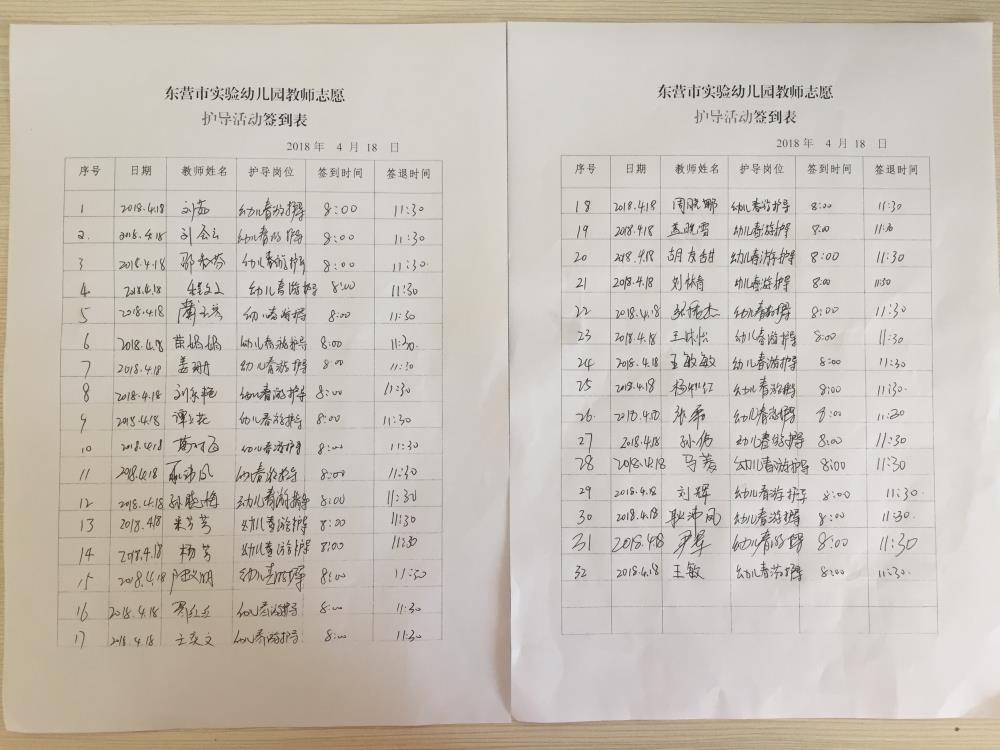 东营市实验幼儿园教师志愿
护导活动签到表
2018 年 4 月 18 日
序号 日期 教师姓名 护导岗位 签到时间 签退时间
1 2018.4.18 刘茹 幼儿春游护导 8:00 11:30
2. 2018.4.18 刘会云 幼儿春游护导 8:00 11:30
3 2018.4.18 幼儿春游护导 8:00 11:30
4 2018.4.18 幼儿春游护导 8:00 11:30
5 2018.4.18 8:00 11:30
6 2018.4.18 苗娟娟 幼儿春游护导 8:00 11:30
7 2018.4.18 孟珊 幼儿春游护导 8:00 11:30
8 2018.4.18 幼儿春游护导 8:00 11:30
9 2018.4.18 幼儿春游护导 8:00 11:30
10 2018.4.18 幼儿春游护导 8:00 11:30
11 2018.4.18 8:00 11:30
12 2018.4.18 孙晓梅 幼儿春游护导 8:00 11:30
13 2018.4.18 幼儿春游护导 8:00 11:30
14 2018.4.18 杨芳 幼儿春游护导 8:00 11:30
15 2018.4.18 幼儿春游护导 8:00 11:30
16 2018.4.18 幼儿春游护导 8:00 11:30
17 2018.4.18 王奕文 幼儿春游护导 8:00 11:30
东营市实验幼儿园教师志愿
护导活动签到表
2018 年 4 月 18 日
序号 日期 教师姓名 护导岗位 签到时间 签退时间
18 2018.4.18 周晓娜 幼儿春游护导 8:00 11:30
19 2018.4.18 孟晓雪 幼儿春游护导 8:00 11:30
20 2018.4.18 胡友甜 幼儿春游护导 8:00 11:30
21 2018.4.18 幼儿春游护导 8:00 11:30
22 2018.4.18 幼儿春游护导 8:00 11:30
23 2018.4.18 幼儿春游护导 8:00 11:30
24 2018.4.18 王敏敏 幼儿春游护导 8:00 11:30
25 2018.4.18 幼儿春游护导 8:00 11:30
26 2018.4.18 张希 幼儿春游护导 8:00 11:30
27 2018.4.18 孙伟 幼儿春游护导 8:00 11:30
28 2018.4.18 马菱 幼儿春游护导 8:00 11:30
29 2018.4.18 刘辉 幼儿春游护导 8:00 11:30
30 2018.4.18 耿沛风 幼儿春游护导 8:00 11:30
31 2018.4.18 幼儿春游护导 8:00 11:30
32 2018.4.18 王敏 幼儿春游护导 8:00 11:30